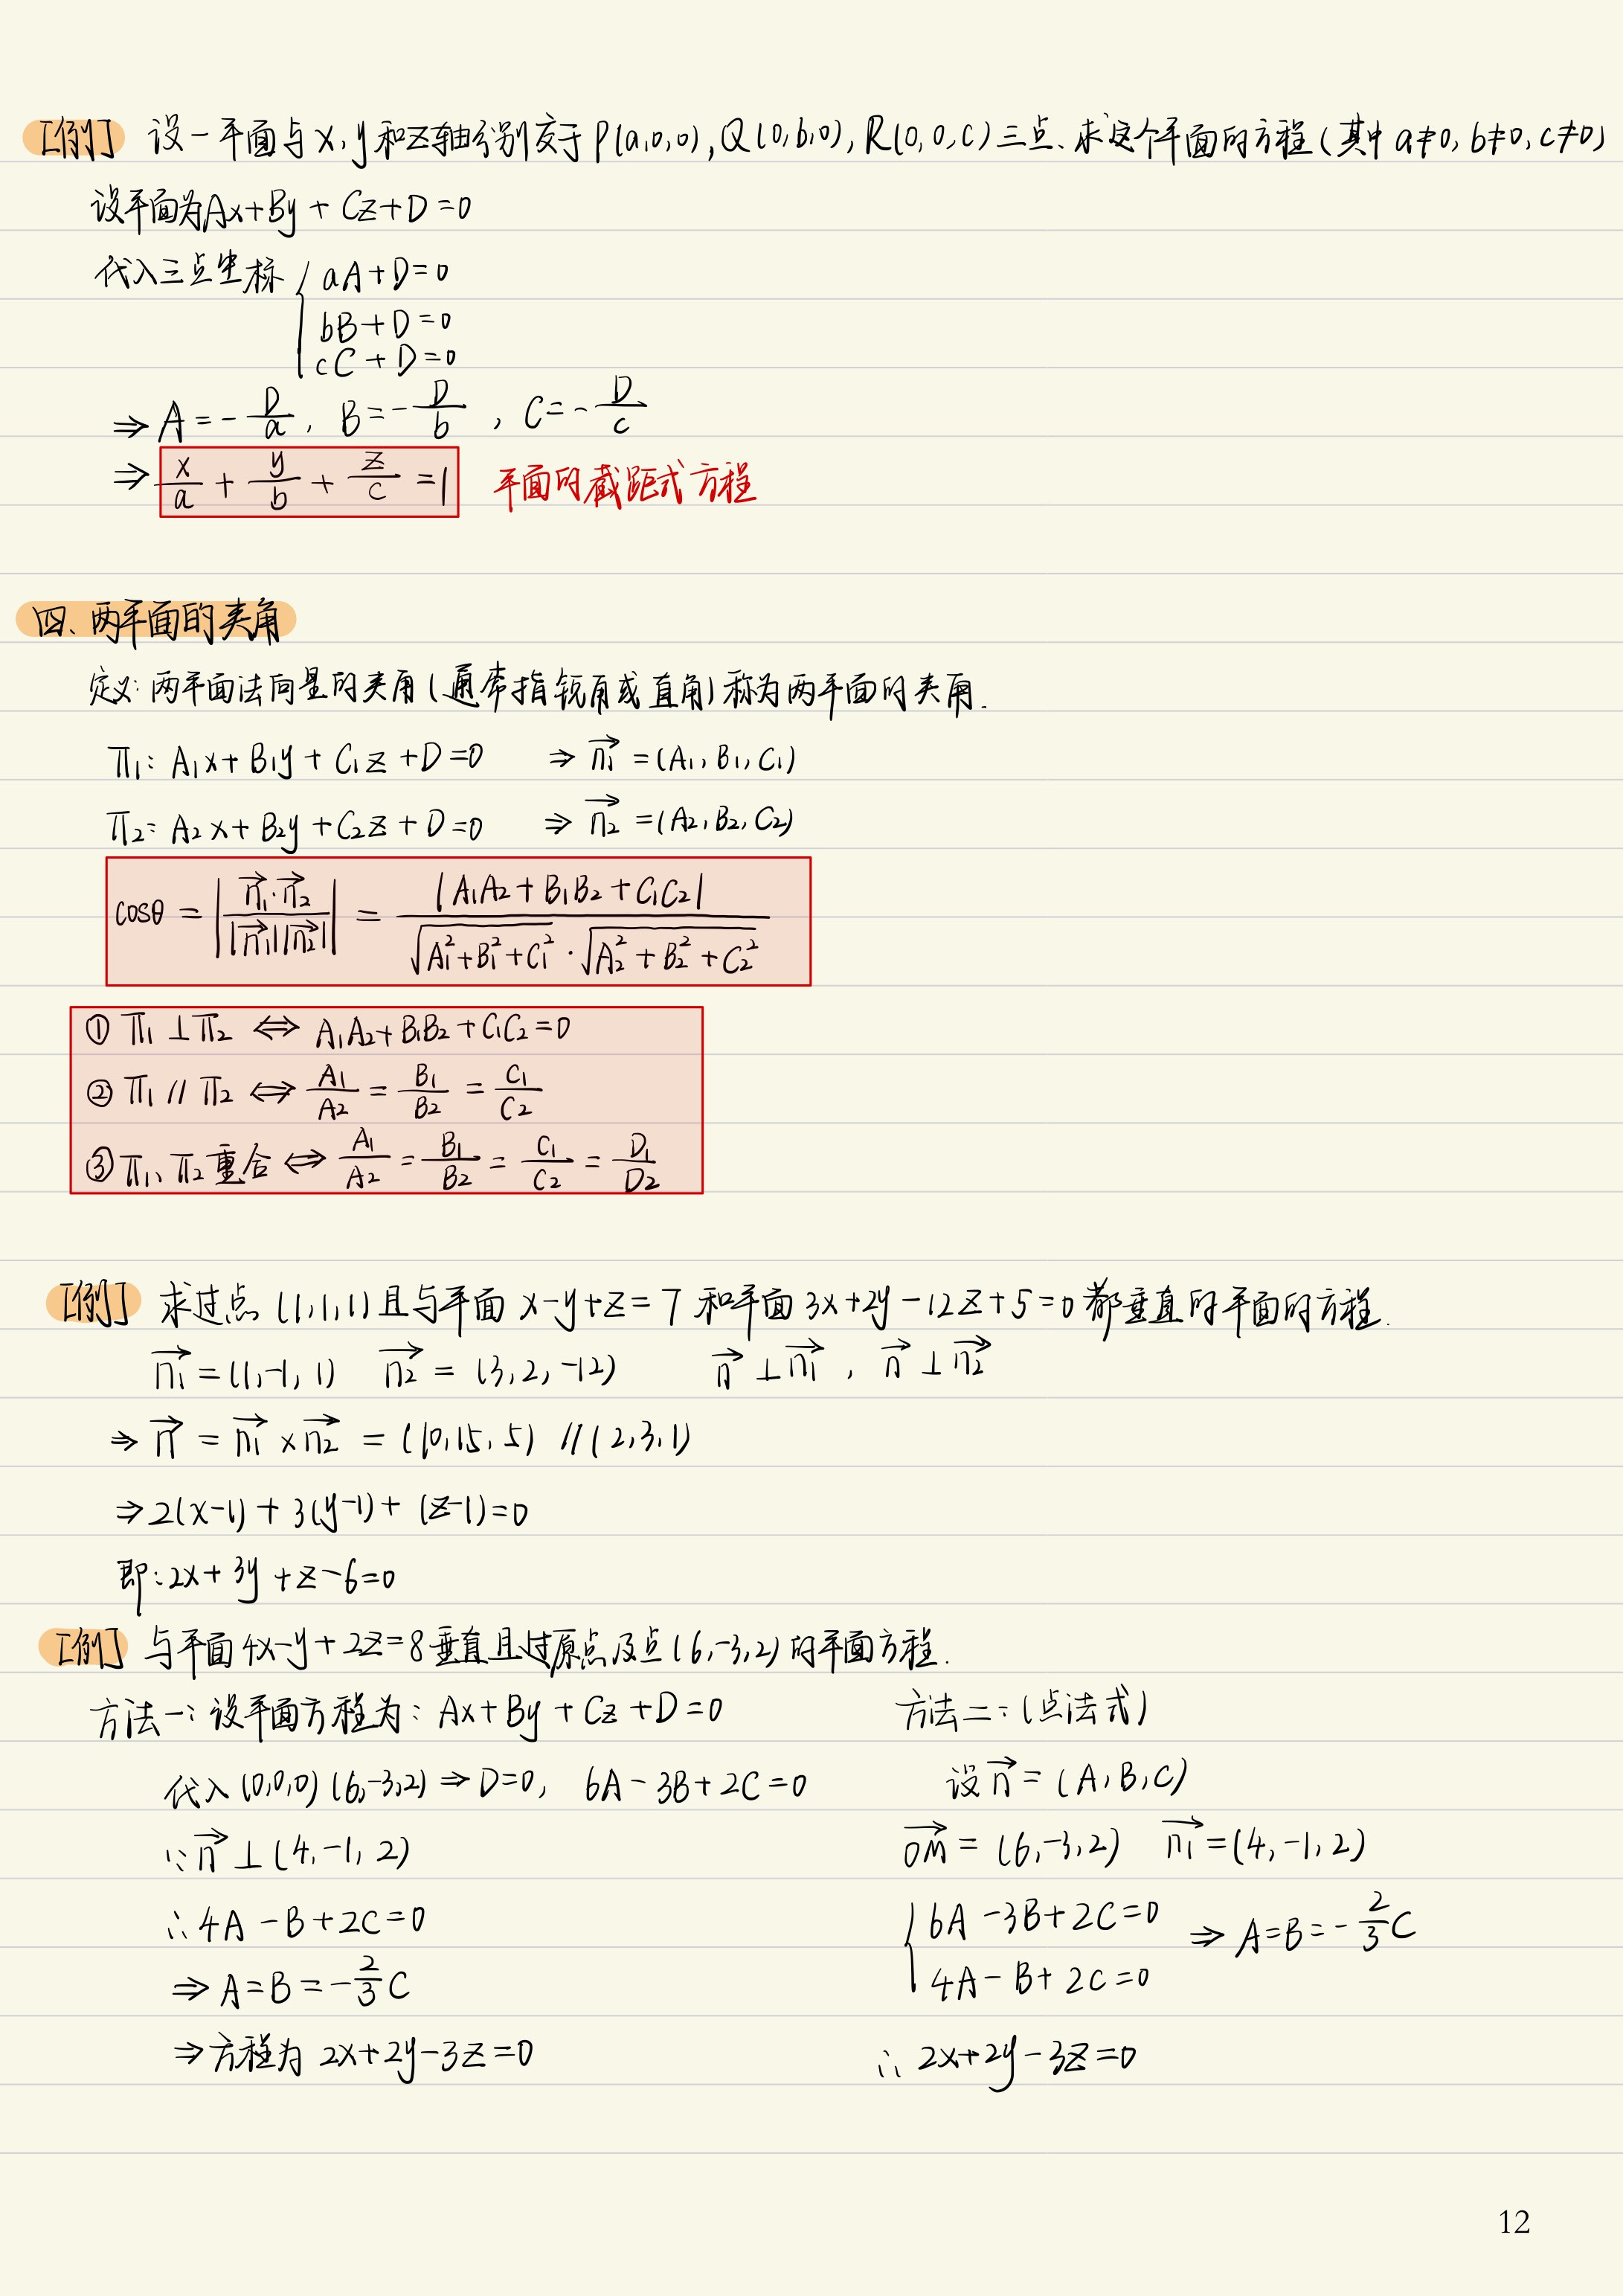 [例] 设一平面与x,y和z轴分别交于P(a,0,0),Q(0,b,0),R(0,0,c)三点、求这个平面的方程(其中a≠0,b≠0,c≠0)
设平面为Ax+By+Cz+D=0
代入三点坐标 { aA+D=0
bB+D=0
cC+D=0
⇒ A=-D/a, B=-D/b, C=-D/c
⇒ x/a + y/b + z/c =1 平面的截距式方程
四、两平面的夹角
定义:两平面法向量的夹角(通常指锐角或直角)称为两平面的夹角.
π₁: A₁x+B₁y+C₁z+D=0 ⇒ n₁→=(A₁,B₁,C₁)
π₂: A₂x+B₂y+C₂z+D=0 ⇒ n₂→=(A₂,B₂,C₂)
cosθ = |n₁→·n₂→ / |n₁→||n₂→|| = |A₁A₂+B₁B₂+C₁C₂| / √(A₁²+B₁²+C₁²)·√(A₂²+B₂²+C₂²)
① π₁⊥π₂ ⇔ A₁A₂+B₁B₂+C₁C₂=0
② π₁//π₂ ⇔ A₁/A₂ = B₁/B₂ = C₁/C₂
③ π₁、π₂重合 ⇔ A₁/A₂ = B₁/B₂ = C₁/C₂ = D₁/D₂
[例] 求过点(1,1,1)且与平面 x-y+z=7 和平面 3x+2y-12z+5=0 都垂直的平面的方程.
n₁→=(1,-1,1) n₂→=(3,2,-12) n→⊥n₁→, n→⊥n₂→
⇒ n→ = n₁→×n₂→ = (10,15,5) //(2,3,1)
⇒2(x-1)+3(y-1)+(z-1)=0
即:2x+3y+z-6=0
[例] 与平面4x-y+2z=8垂直且过原点及点(6,-3,2)的平面方程.
方法一:设平面方程为:Ax+By+Cz+D=0
代入(0,0,0)(6,-3,2)⇒D=0, 6A-3B+2C=0
∵n→⊥(4,-1,2)
∴4A-B+2C=0
⇒A=B=-2/3C
⇒方程为 2x+2y-3z=0
方法二:(点法式)
设n→=(A,B,C)
OM→=(6,-3,2) n₁→=(4,-1,2)
{ 6A-3B+2C=0 ⇒ A=B=-2/3C
4A-B+2C=0
∴ 2x+2y-3z=0
12